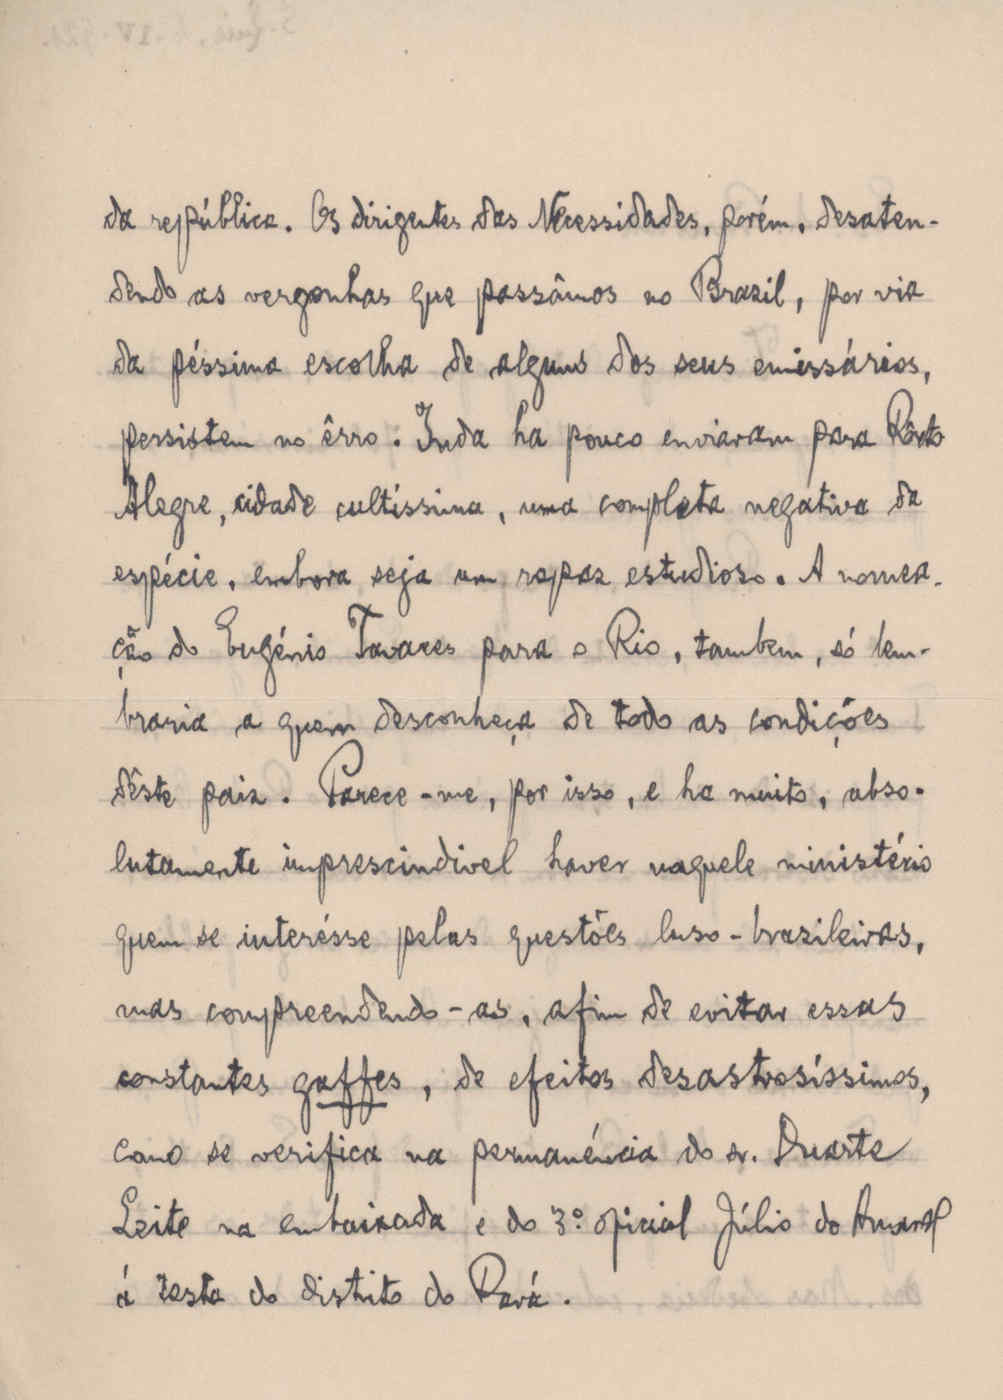 da república. Os dirigentes das Necessidades, porém, desaten-
dendo as vergonhas que passâmos no Brazil, por via
da péssima escolha de alguns dos seus emissários,
persistem no êrro. Inda ha pouco enviaram para Pôrto
Alegre, cidade cultíssima, uma completa negativa da
espécie, embora seja um rapaz estudioso. A nomea-
ção do Eugénio Tavares para o Rio, tambem, só lem-
braria a quem desconheça de todo as condições
dêste paiz. Parece-me, por isso, e ha muito, abso-
lutamente imprescindivel haver naquele ministério
quem se interésse pelas questões luso-brazileiras,
mas compreendendo-as, afim de evitar essas
constantes gaffes, de efeitos desastrosíssimos,
como se verifica na permanéncia do sr. Duarte
Leite na embaixada e do 3º oficial Júlio do Amaral
á testa do distrito do Pará.